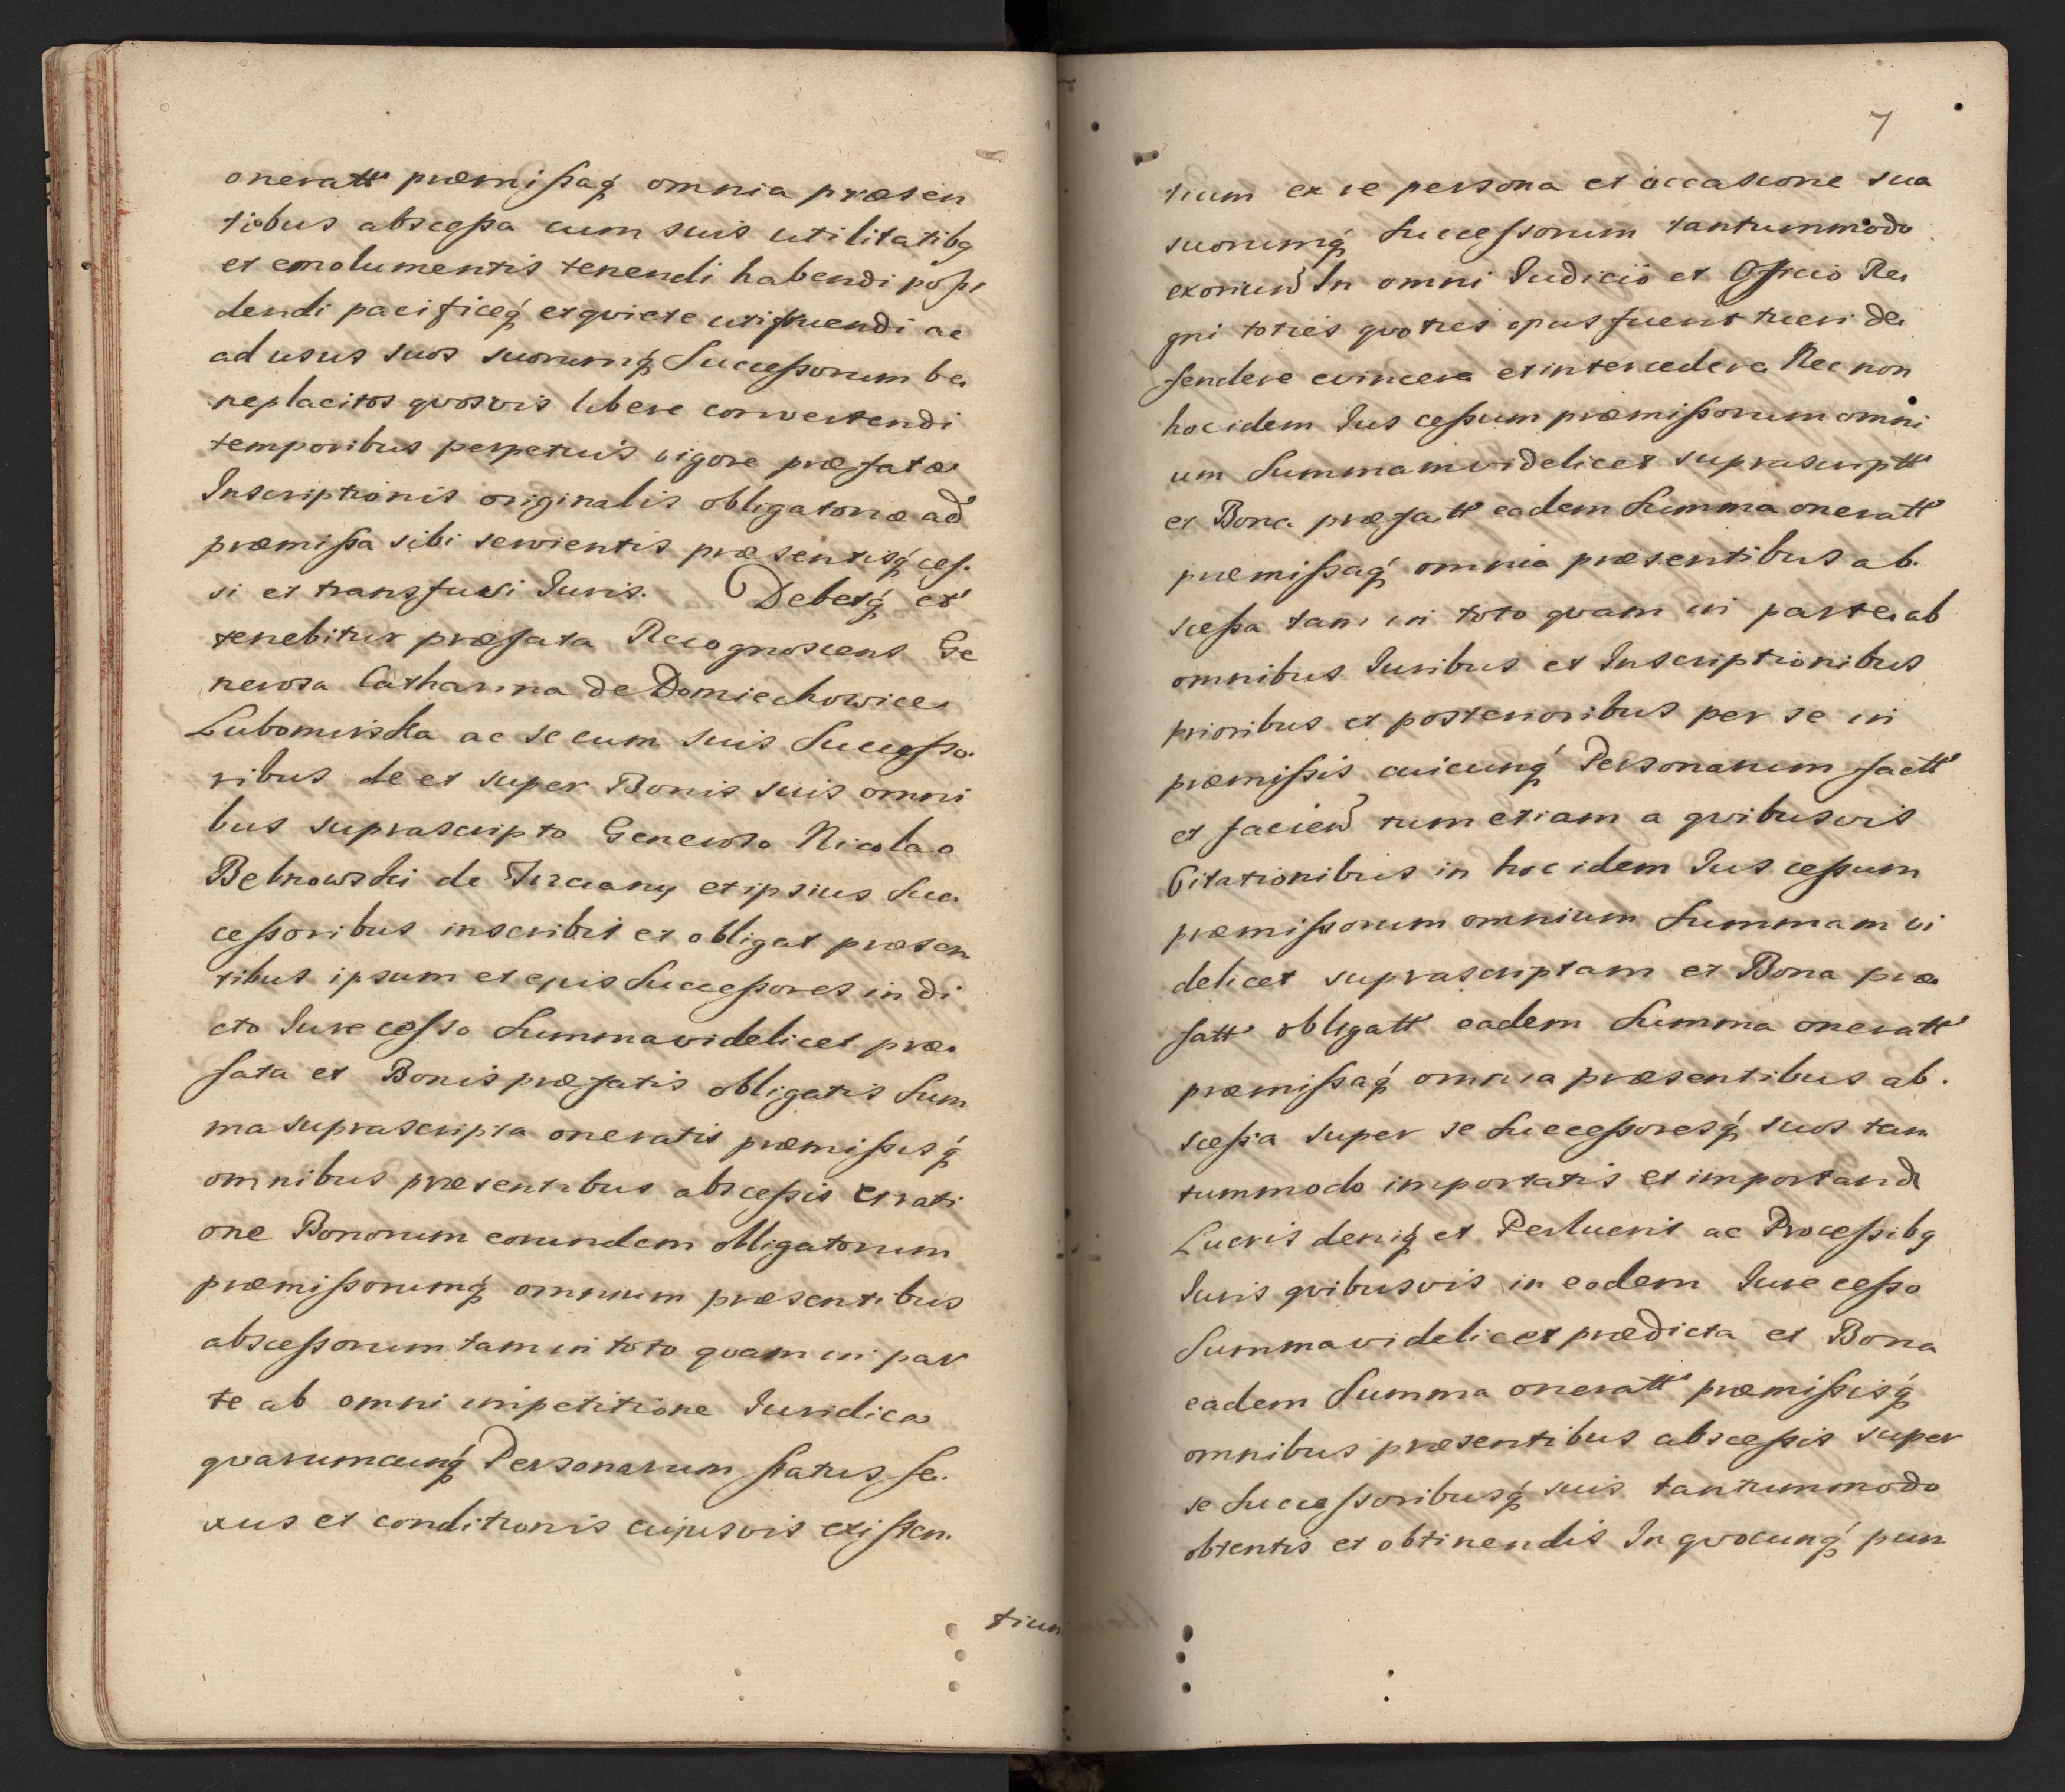 oneratt præmißaq́ omnia præsen
tibus abscessa cum suis utilitatibq
et emolumentis tenendi habendi poßi
dendi pacificeq́ et qviete utifruendi ac
ad usus suos suorumq́ Successorum be
neplacitos qvosvis libere convertendi
temporibus perpetuis vigore præfatæ
Inscriptionis originalis obligatoriæ ad
præmißa sibi servientis præsentisq́ ces.
si et transfusi Iuris. Debetq́ et
tenebitur præfata Recognoscens Ge
nerosa Catharina de Domiechowice
Lubomirska ac secum suis Successo.
ribus de et super Bonis suis omni
bus suprascripto Generoso Nicolao
Bebnowski de Turczany et ipsius Suc
ceßoribus inscribit et obligat præsen
tibus ipsum et ejus Succeßores in di
cto Iure cesso Summa videlicet præ
fata et Bonis præfatis obligatis Sum
ma suprascripta oneratis præmißisq́
omnibus præsentibus absceßis et rati
one Bonorum eorundem obligatorum
præmißorumq́ omnium præsentibus
absceßorum tam in toto qvam in par
te ab omni impetitione Iuridica
qvarumcunq́ Personarum status se.
xus et conditionis cujusvis existen.
tium
7
tium ex re persona et occasione sua
suorumq́ Successorum tantummodo
exoriend In omni Iudicio et Officio Re
gni toties qvoties opus fuerit tueri de
fendere evincere et intercedere Nec non
hoc idem Ius ceßum præmißorum omni
um Summam videlicet suprascriptt
et Bona præfatt eadem Summa oneratt
præmißaq́ omnia præsentibus ab.
sceßa tam in toto qvam in parte ab
omnibus Iuribus et Inscriptionibus
prioribus et posterioribus per se in
præmißis cuicunq́ Personarum factt
et faciend tum etiam a qvibusvis
Citationibus in hoc idem Ius ceßum
præmißorum omnium Summam vi
delicet suprascriptam et Bona præ
fatt obligatt eadem Summa oneratt
præmißaq́ omnia præsentibus ab.
sceßa super se Succeßoresq́ suos tan
tummodo importatis et importand
Lucris deniq́ et Perlucris ac Proceßibq
Iuris qvibusvis in eodem Iure cesso
Summa videlicet prædicta et Bona
eadem Summa oneratt præmißisq́
omnibus præsentibus absceßis super
se Successoribusq́ suis tantummodo
obtentis et obtinendis In qvocunq́ pun